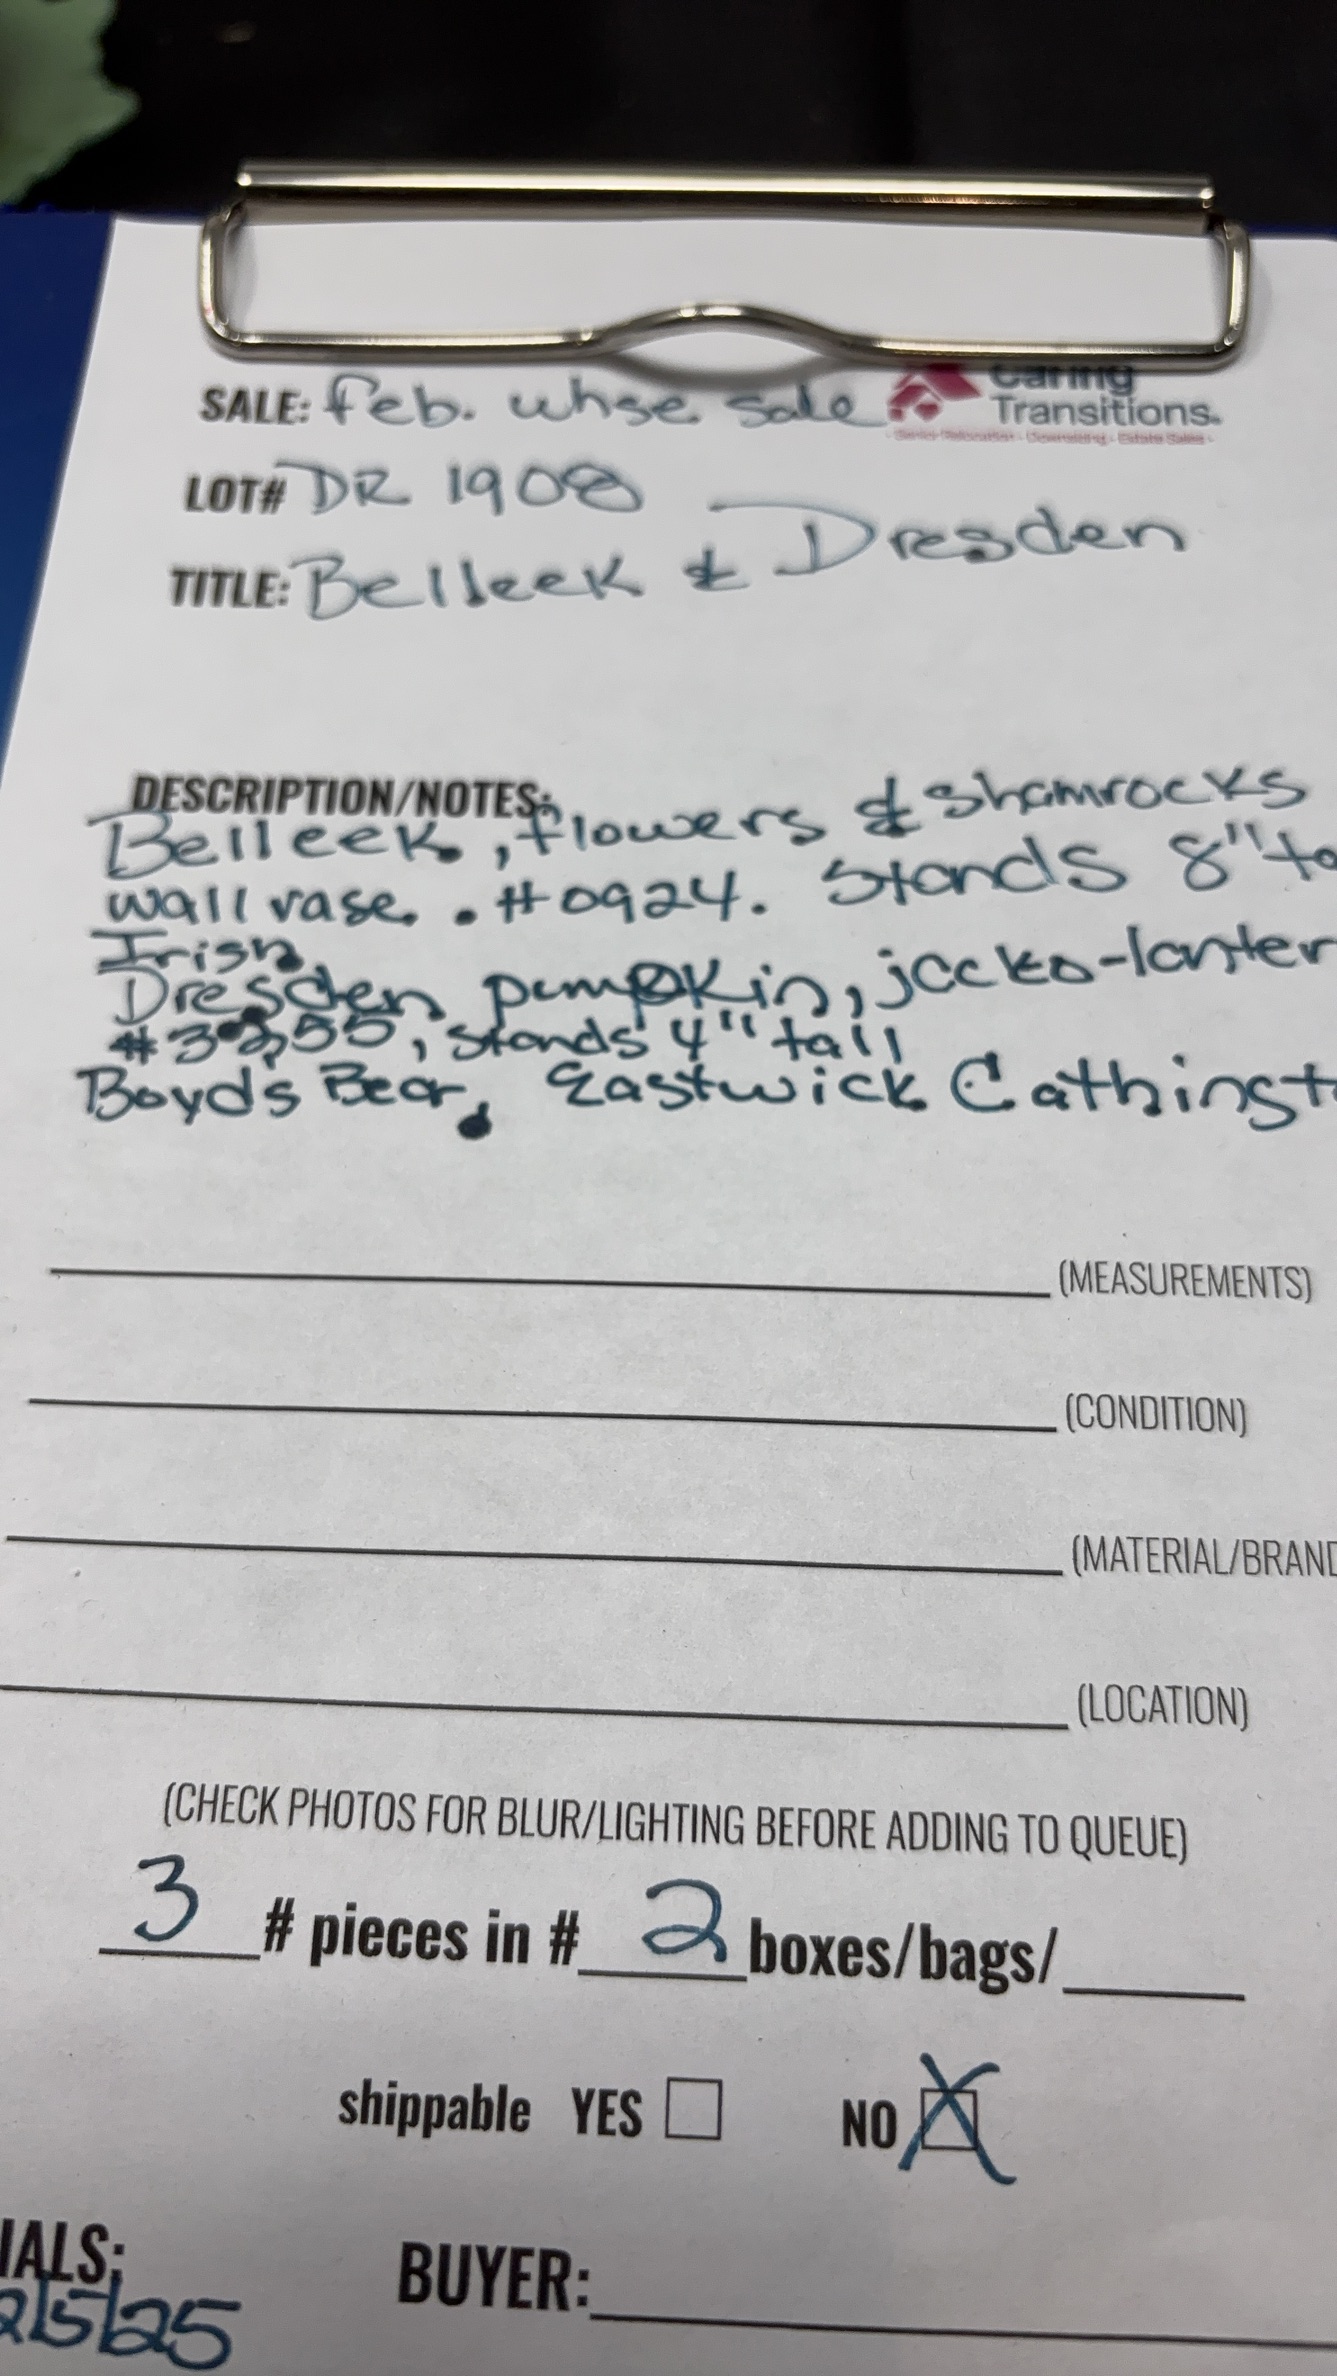 SALE: Feb. whse sale Caring
Transitions.
Senior Relocation · Downsizing · Estate Sales
LOT# DR 1908
TITLE: Belleek & Dresden
DESCRIPTION/NOTES:
Belleek, flowers & shamrocks
wall vase. #0924. Stands 8" ta
Irish
Dresden pumpkin, jacko-lanter
stands 4" tall
Boyds Bear, Eastwick Cathingt
(MEASUREMENTS)
(CONDITION)
(MATERIAL/BRAND
(LOCATION)
(CHECK PHOTOS FOR BLUR/LIGHTING BEFORE ADDING TO QUEUE)
3 # pieces in # 2 boxes/bags/
shippable YES NO X
IALS:
BUYER:
2/5/25